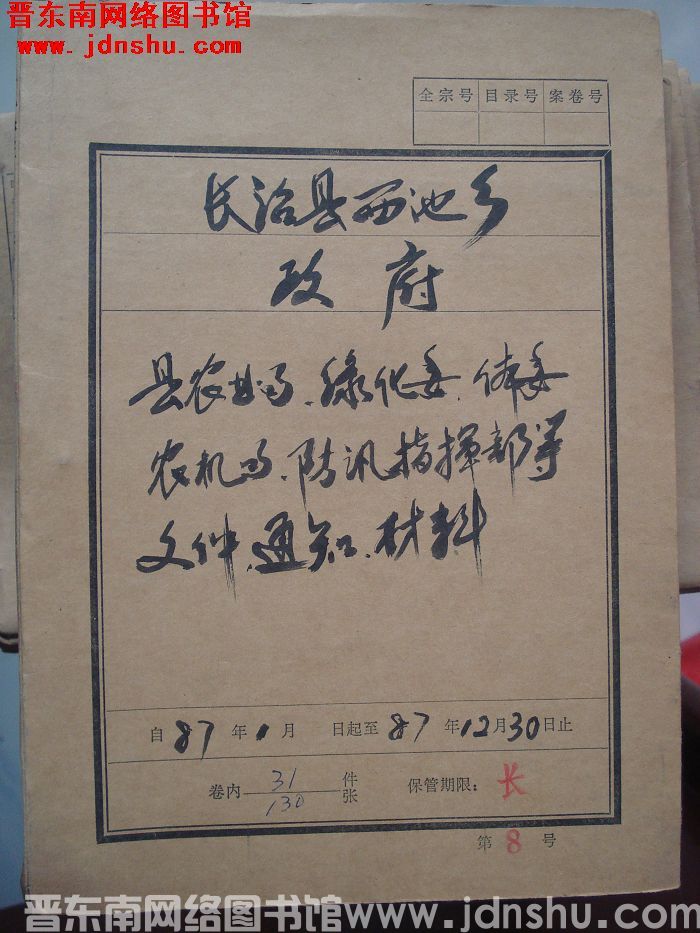 晋东南网络图书馆
www.jdnshu.com
全宗号 目录号 案卷号
长治县西池乡
政府
县农业局、绿化委、体委
农机局、防汛指挥部等
文件、通知、材料
自87年1月 日起至87年12月30日止
卷内31件
130张
保管期限：长
第8号
晋东南网络图书馆www.jdnshu.com